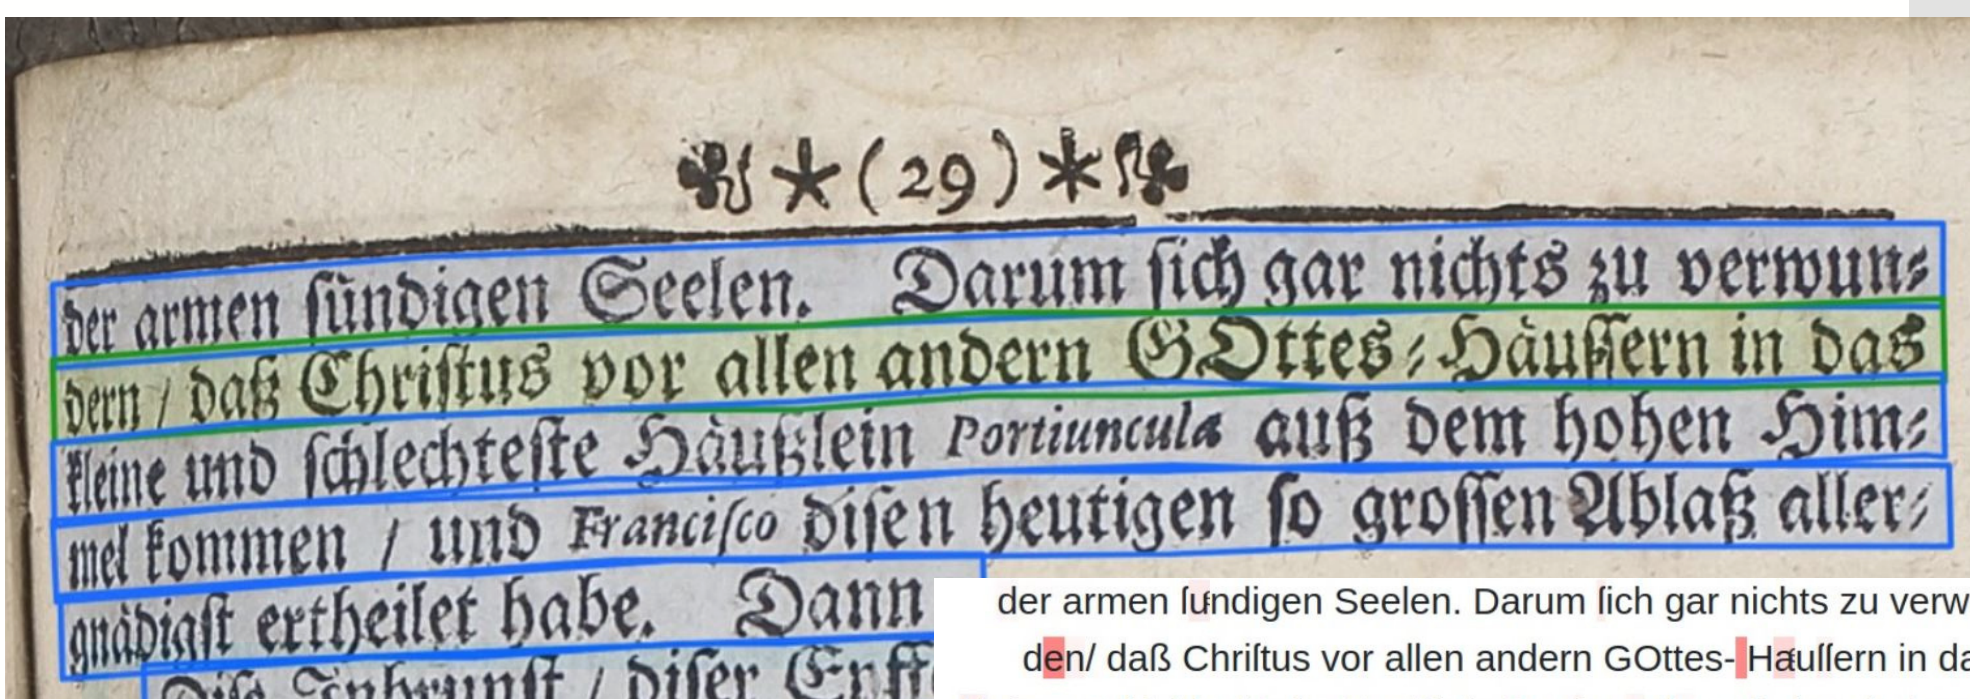 (29)
der armen ſündigen Seelen. Darum ſich gar nichts zu verwun⸗
dern / daß Chriſtus vor allen andern GOttes⸗Haͤuſſern in das
kleine und ſchlechteſte Haͤußlein Portiuncula auß dem hohen Him⸗
mel kommen / und Franciſco diſen heutigen ſo groſſen Ablaß aller⸗
gnaͤdigſt ertheilet habe. Dann
Diſe Inbrunſt / diſer
der armen ſuͤndigen Seelen. Darum ſich gar nichts zu verw
den/ daß Chriſtus vor allen andern GOttes- Haͤuſſern in da